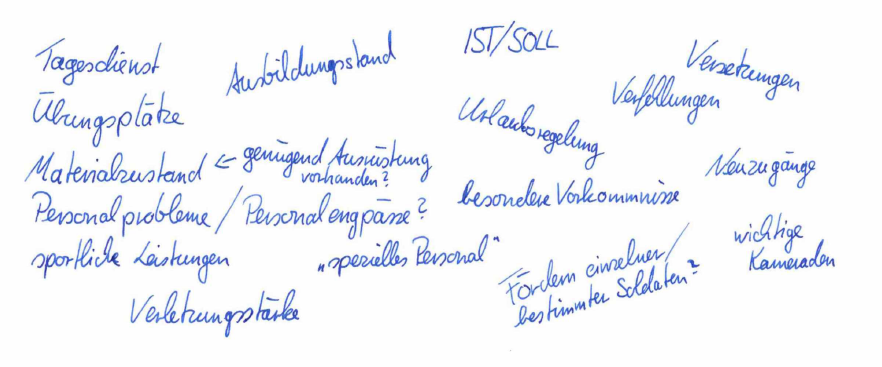 Tagesdienst
Ausbildungsstand
IST/SOLL
Versetzungen
Übungsplätze
Verfehlungen
Urlaubsregelung
Materialzustand ← genügend Ausrüstung
vorhanden?
Neuzugänge
Personalprobleme / Personalengpässe?
besondere Vorkommnisse
sportliche Leistungen
„spezielles Personal“
Fördern einzelner/
bestimmter Soldaten?
wichtige
Kameraden
Verletzungsstärke